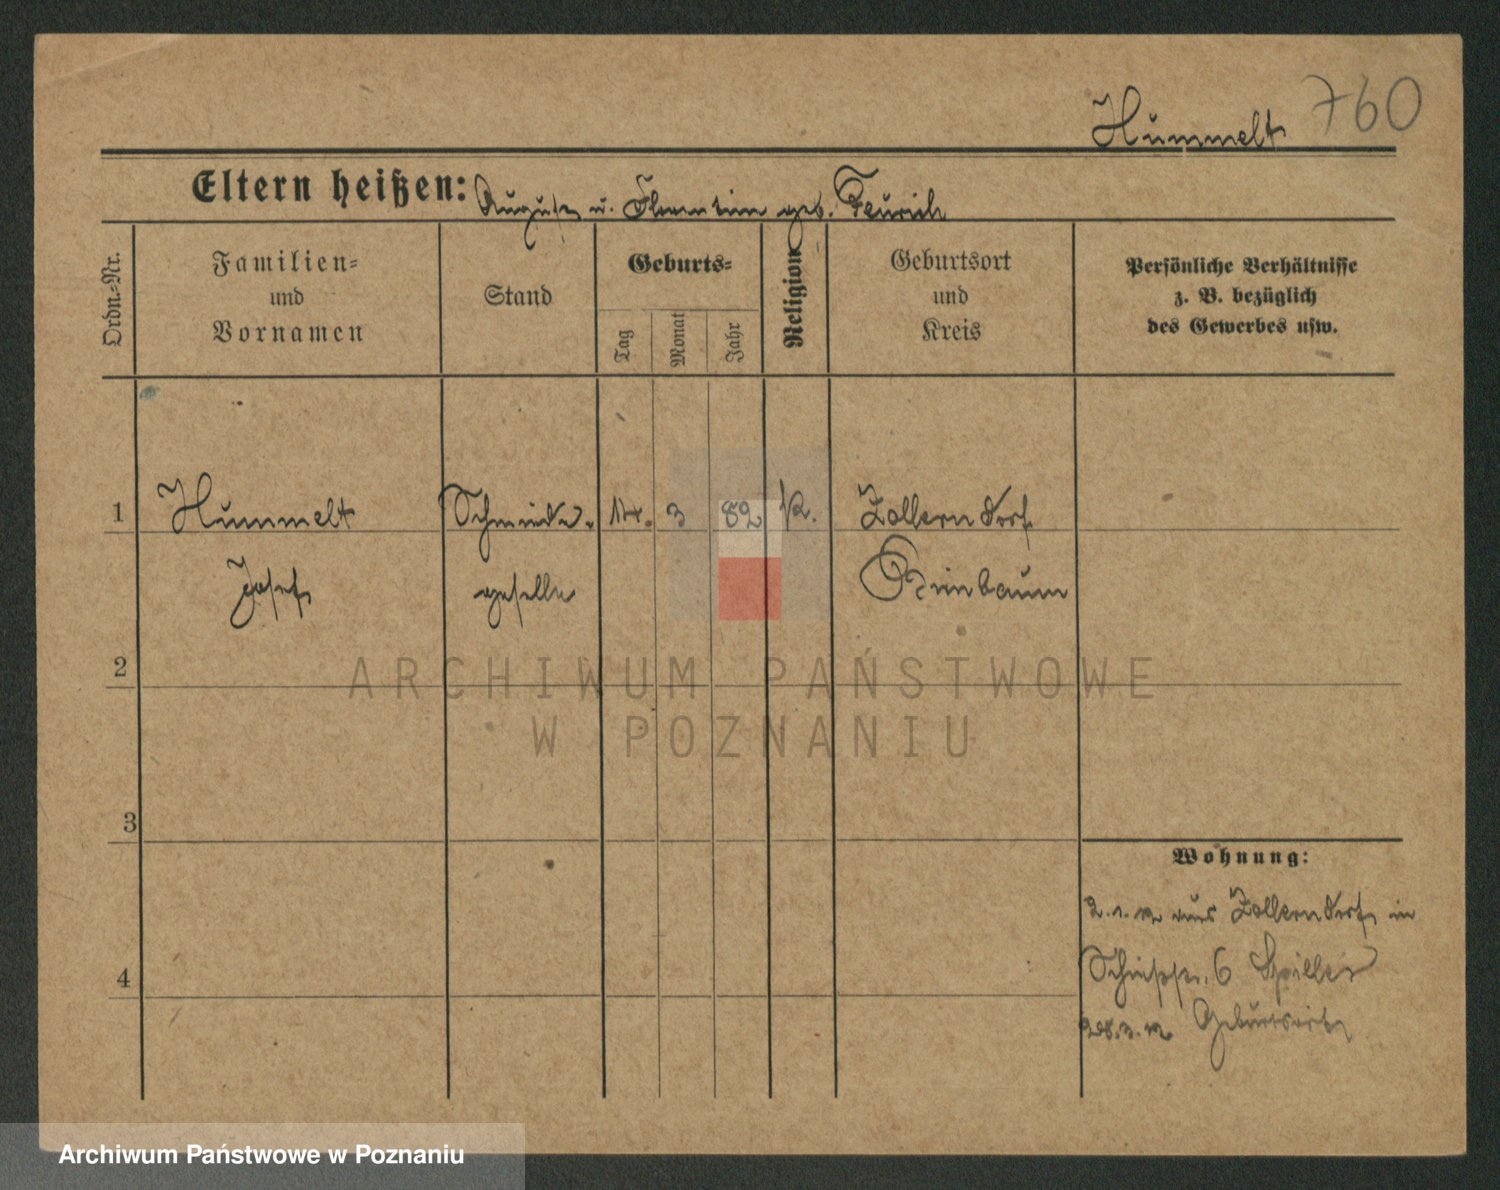 Hummelt 760
Eltern heißen: August u. Florentine geb. Feurich
Ordn.-Nr.
Familien-
und
Vornamen
Stand
Geburts-
Tag
Monat
Jahr
Religion
Geburtsort
und
Kreis
Persönliche Verhältnisse
z. B. bezüglich
des Gewerbes usw.
1 Hummelt Schmiede- 14. 3 82 K. Zollerndorf
Josef geselle Birnbaum
2
ARCHIWUM PAŃSTWOWE
W POZNANIU
3
Wohnung:
2.1.12 aus Zollerndorf in
Schießstr. 6 Spiller
4
28.3.12 Geburtsort
Archiwum Państwowe w Poznaniu